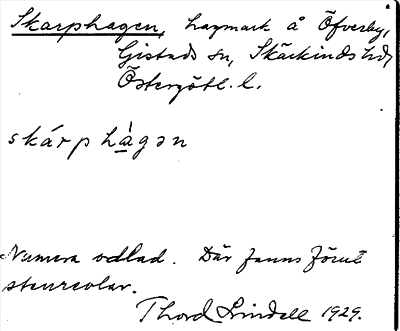 Skarphagen, hagmark å Öfverby,
Gistads sn, Skärkinds hd,
Östergötl. l.
skárp hàgən
Numera odlad. Där fanns förut
stenreolar.
Thord Lindell 1929.